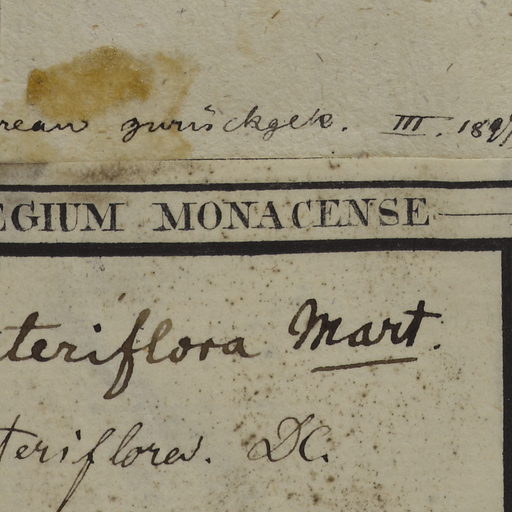 zurückgek. III. 1897
EGIUM MONACENSE
teriflora Mart.
teriflora. DC.